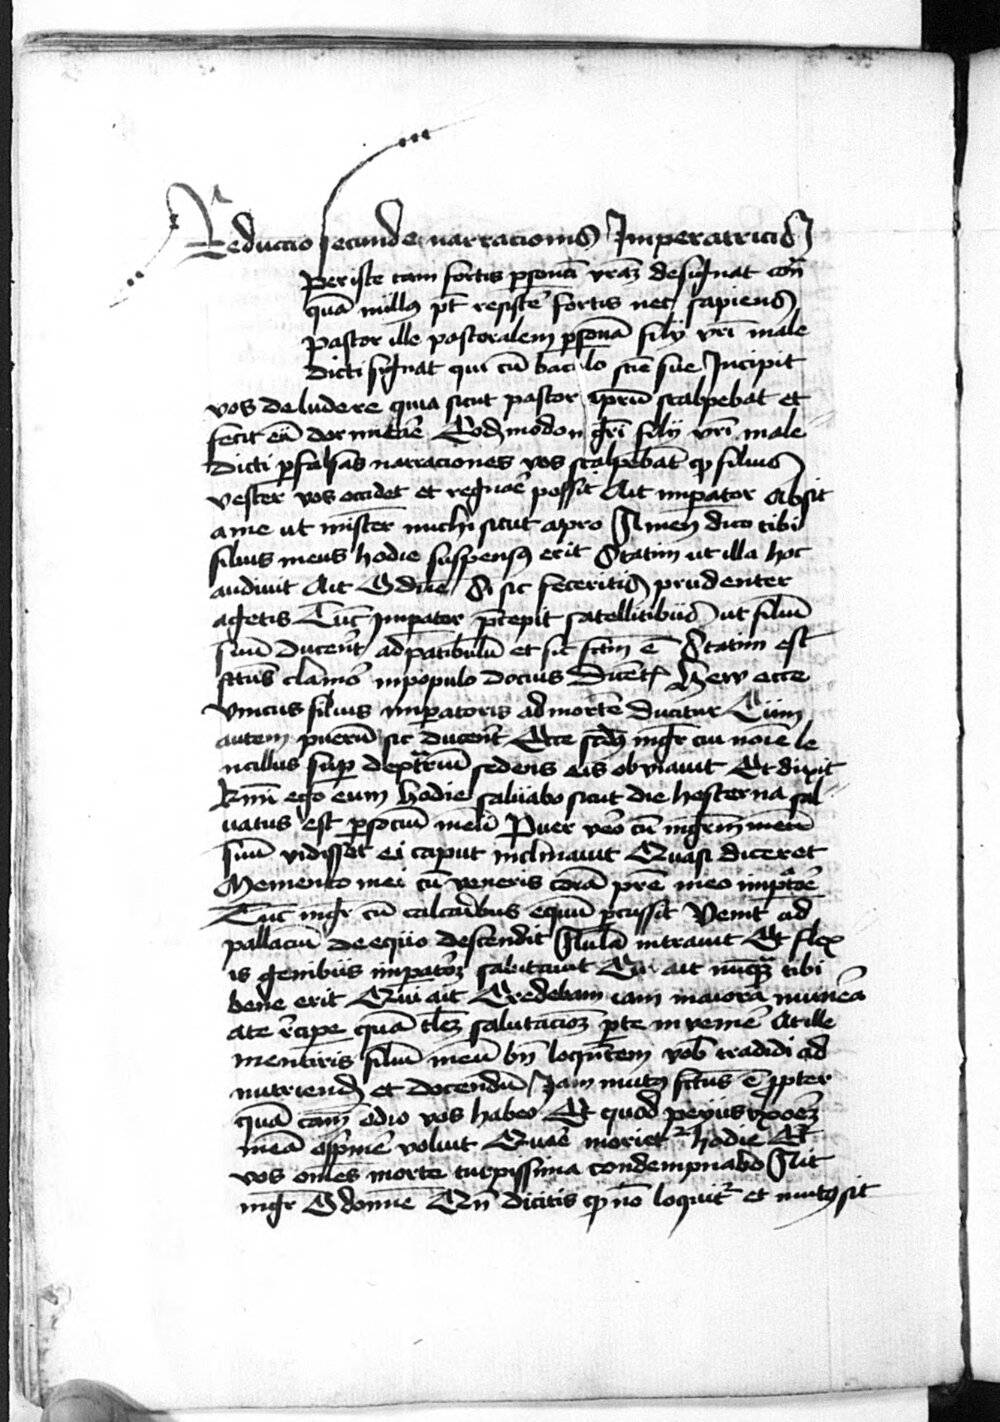 Reduccio secunde narracionis Imperatricis
Per iste tam fortis psonā vrāz designat cōn
quā nullus pt resistē fortis nec sapiens
Pastor ille pastoralem psonā filij vrī male
dicti signat qui cū baculo scīe sue Incipit
vos deludere quia sicut pastor aprū scalpebat et
fecit eū dormitare Eod modo mgrī filij vrī male
dicti p falsas narraciones vos scalpebāt q filius
vester vos occidet et regnare possit Ait impator Absit
a me ut mister michi sicut apro Amen dico tibi
filius meus hodie suspensus erit Statim ut illa hoc
audiuit Ait O dne Si sic feceritis prudenter
agetis Tūc Impator pcepit satellitibus ut filiū
suū ducerēt ad patibulū et sic fctm ē Statim est
fctus clamor in populo dicens Heu ecce
vnicus filius imperatoris ad mortē ducitur Cum
autem puerū sic ducerēt Ecce scds mgr cui noīe le
ncillus sup dextrariū sedens eis obviauit Et dixit
ego eum hodie saluabo sicut die hesterna sal
uatus est p sociū meū Puer vo cū mgrm meū
suū vidisset ei caput inclinauit Quasi diceret
Memento mei cū veneris corā pre meo impatoē
Tūc mgr cū calcaribus equū pcussit Venit ad
pallaciū de equo descendit Aulā intrauit Et flex
is genibus impatorē salutauit Cui ait nūq tibi
bene erit Qui ait Credebam iam maiora munera
a te rcipe quā tlez salutacioz pte in venire At ille
mentiris filiū meū bn loquētem vob tradidi ad
nutriend et docendū Jam mutus fctus ē ppter
quā cam odio vos habeo Et quod peius vxorez
meā oppmē voluit Quaē morietr hodie Et
vos omēs morte turpissima condempnabo Ait
mgr O domine Qn dicitis q nō loquitr et mutus sit